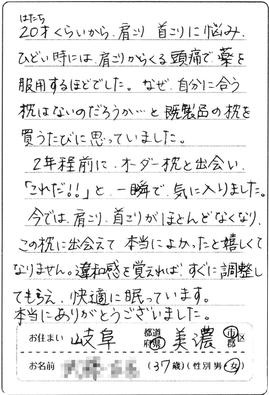 はたち
20才くらいから、肩こり 首こりに悩み、
ひどい時には、肩こりからくる頭痛で薬を
服用するほどでした。なぜ、自分に合う
枕はないのだろうか…と既製品の枕を
買うたびに思っていました。
2年程前に、オーダー枕と出会い、
「これだ!!」と、一瞬で、気に入りました。
今では、肩こり、首こりがほとんどなくなり、
この枕に出会えて 本当によかったと嬉しくて
なりません。違和感を覚えれば、すぐに調整し
てもらえ、快適に眠っています。
本当にありがとうございました。
お住まい 岐阜 都道府県 美濃 市区
お名前 (37歳)(性別 男・女)